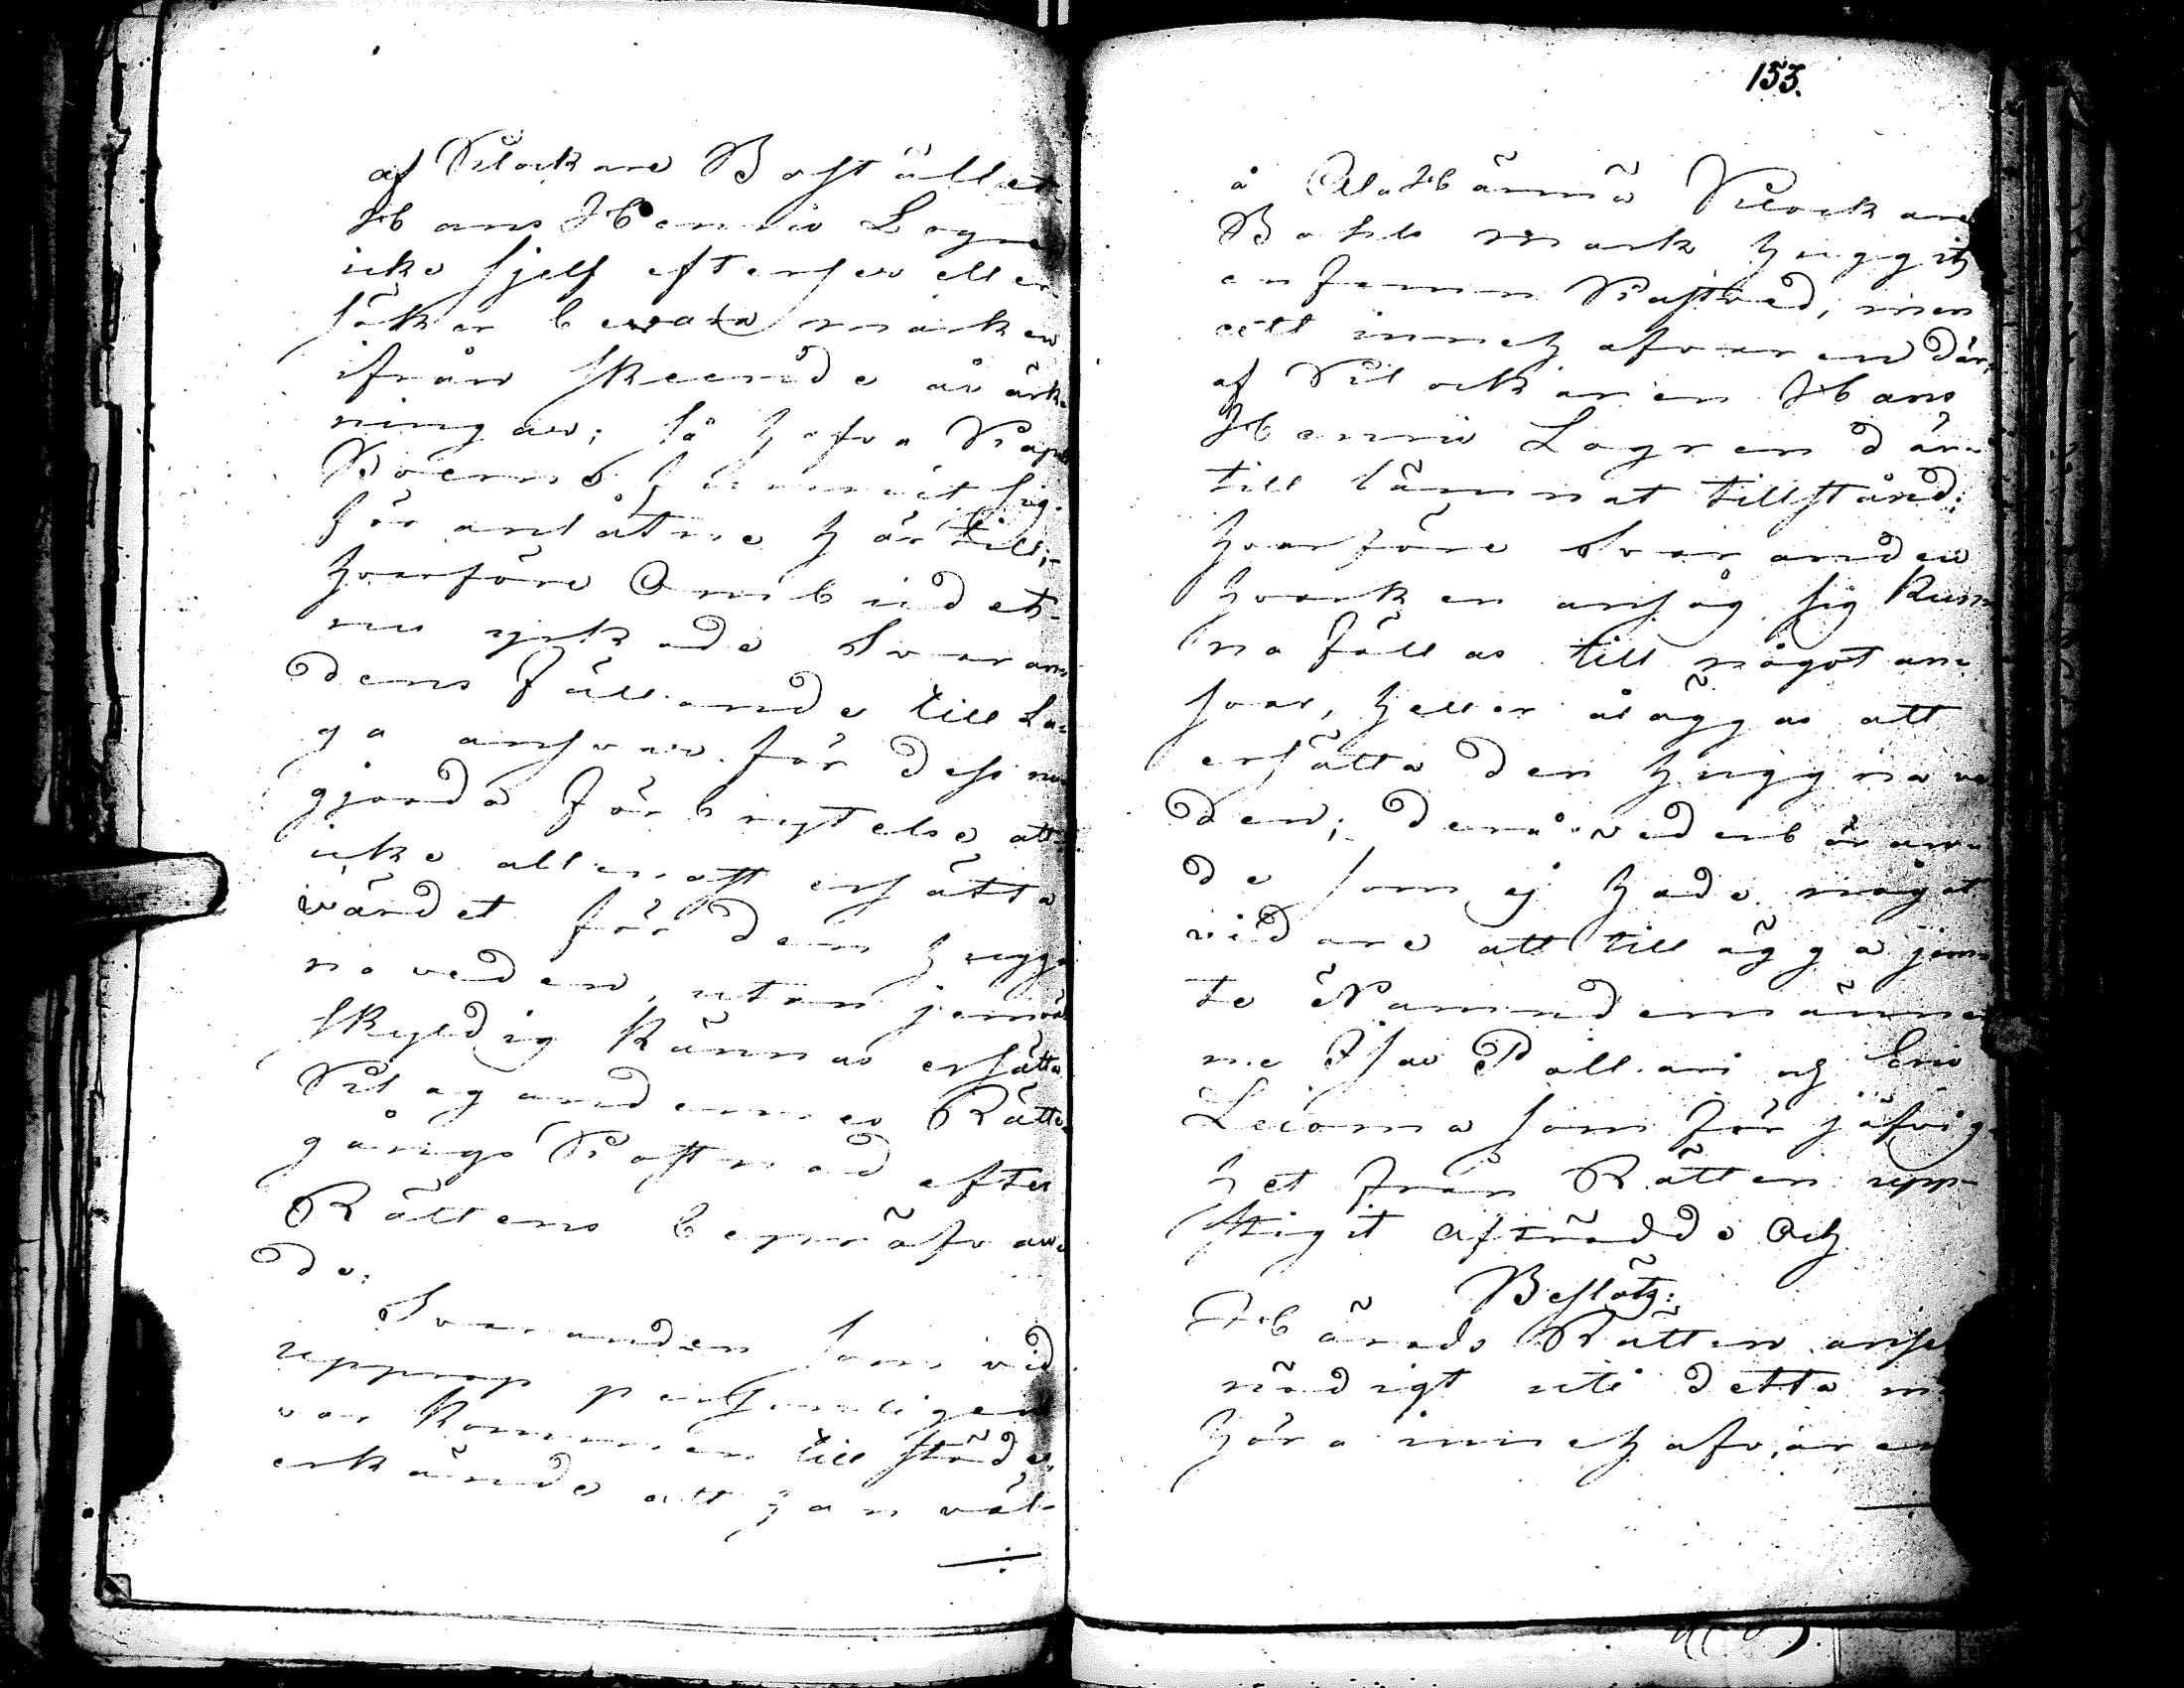 af Klockare Boställets
Hans Henric Logren
icke sjelf efterser eller
söker bevara marken
ifrån skeende åvärk-
ningar; så hafva Kapell
Boerne funnit sig
föranlåtne härtill;
hvarföre Ombudet
nu yrkade Svaran-
dens fällande till La-
ga ansvar för dess nu
gjorda förbrytelse att
icke allenast ersätta
värdet för den hugg-
na veden, utan jemväl
skyldig kännas ersätta
Kilagandernes Rätte-
gångs Kostnad efter
Rättens bepröfvan-
de.
Svaranden som vid
upprop personligen
var kommen tillstädes,
erkände att han väl

153.
å AlaHärmä Klockare
Bohls mark huggit
en famn Kastved, men
att innehafvaren där-
af Klockaren Hans
Henric Logren där-
till lämnat tillstånd;
hvarföre Svaranden
hvarken ansåg sig kun-
na fällas till något an-
svar, heller åläggas att
ersätta den huggna ve-
den; derå vederböran-
de som ej hade något
vidare att tillägga jem-
te Nämndemänner-
ne Isac Pollari och Eric
Leioma som för jäfvig-
het från Rätten upp-
stigit afträdde och
Beslöts:
Härads Rätten anser
nödigt uti detta mål
höra innehafvaren